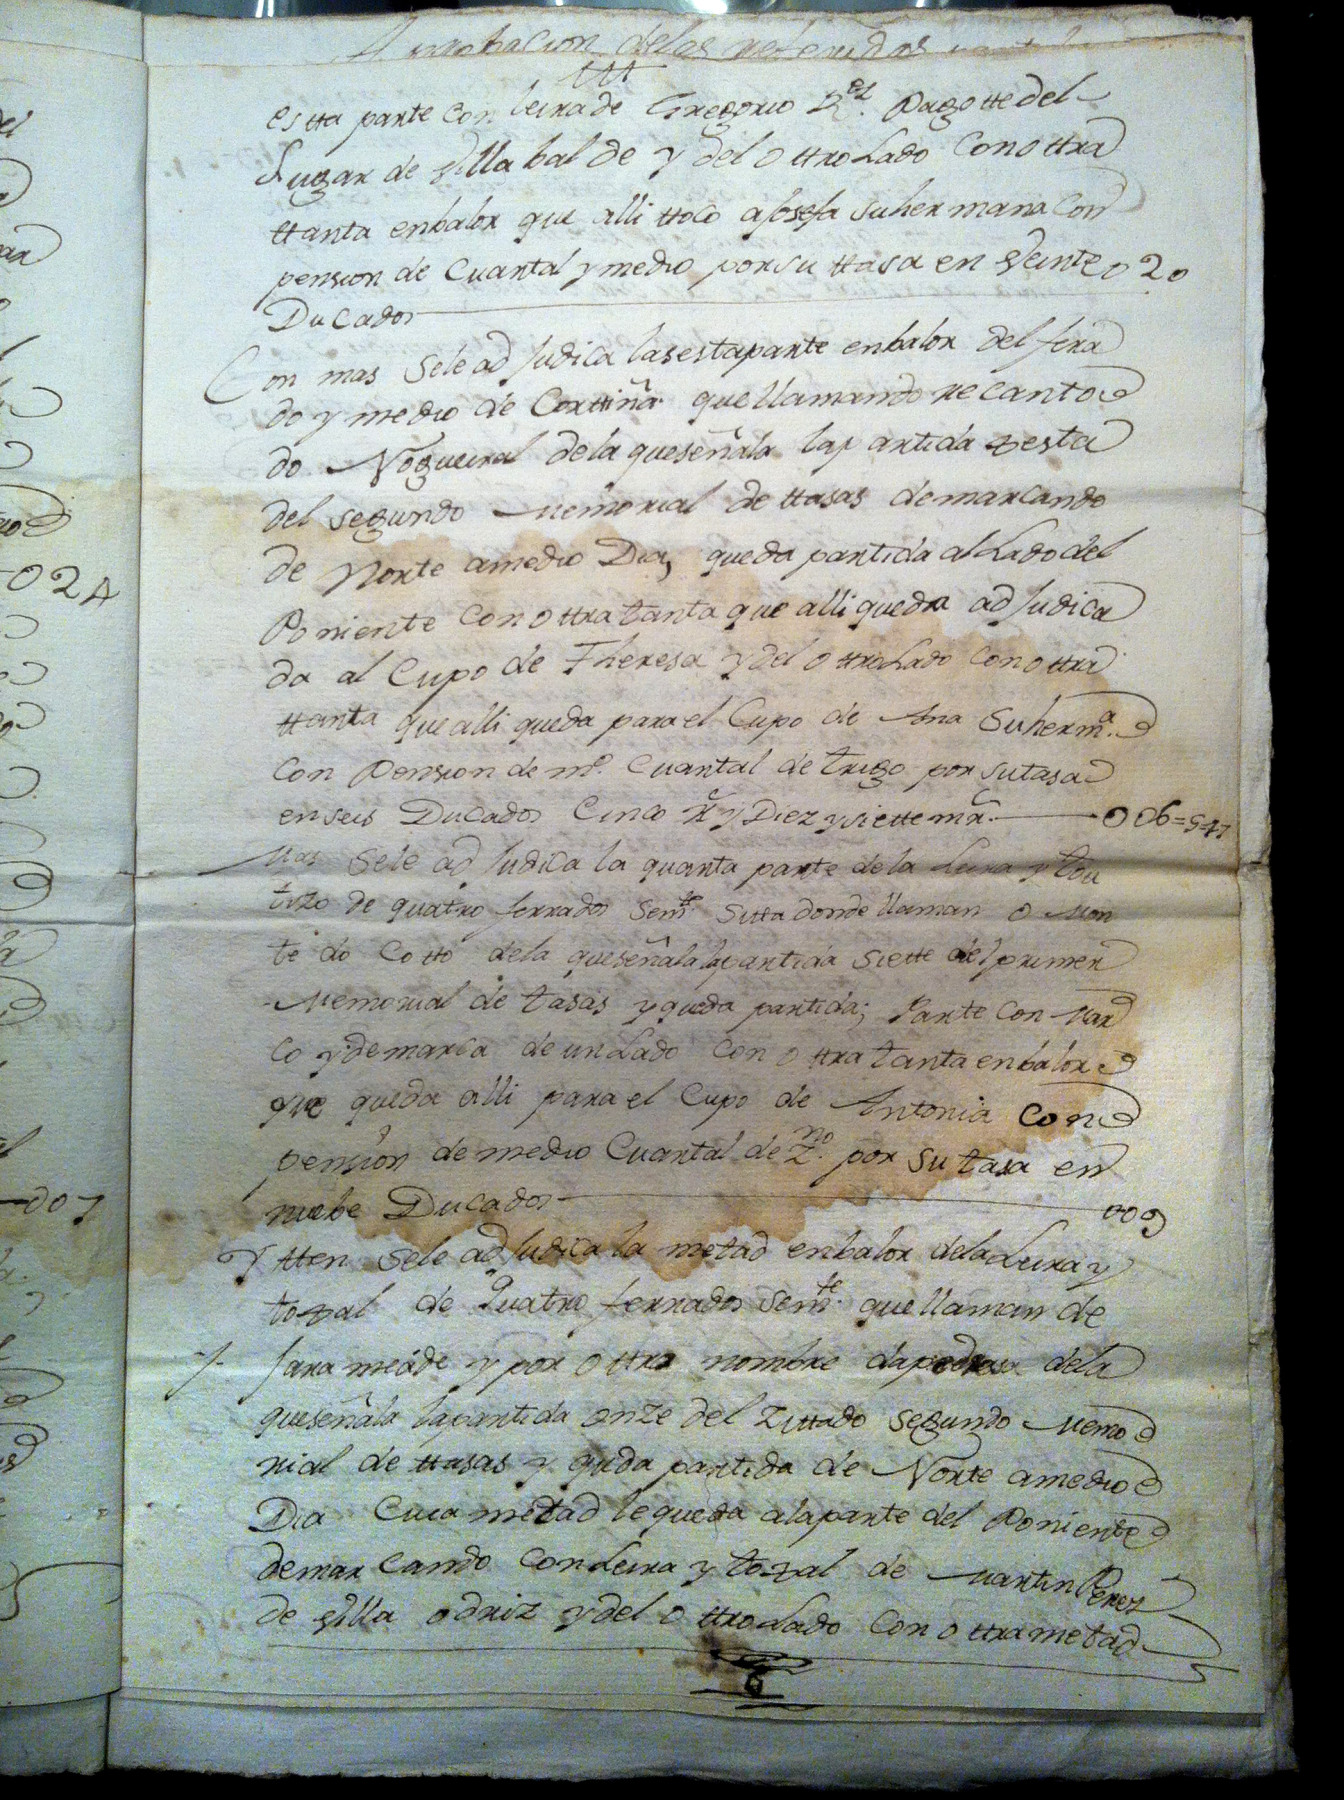 aprobacion delas referidas
estta parte con leira de Gregorio Rez. Pagotte del
Lugar de Villa bal de y del ottro Lado Con ottra
ttanta enbalor que alli ttoco a Josefa su hermana Con
pension de Cuartal y medio por su ttasa en Veinte 020
Ducados
Con mas Sele ad Judica la sesta parte enbalor del ferra
do y medio de Corttiña que llamando recanto
do Nogueiral dela que señala la partida sesta
del segundo Memorial de ttasas demarcando
de Norte a medio Dia, queda partida al Lado del
Poniente Con ottra tanta que alli queda ad Judica
da al Cupo de Theresa y del ottro Lado Con ottra
ttanta que alli queda para el Cupo de Ana Su herma.
Con Pension de mo. Cuartal de trigo por su tasa
en seis Ducados Cinco rs y Diez y siette mrs. 006=5=17
Mas Sele ad Judica la quarta parte de la Leira y tou
tizo de quatro ferrados semte. Sitta donde llaman o Mon
te do Cotto dela que señala la partida Siette del primer
Memorial de tasas y queda partida; Parte Con Mar
co y demarca de un Lado Con ottra tanta enbalor
que queda alli para el Cupo de Antonia Con
pension de medio Cuartal de Zno. por su tasa en
nuebe Ducados 009
Ytten Sele ad Judica la metad enbalor dela Leira y
tozal de Quatro ferrados semte. que llaman de
Jara meáde y por ottro nombre dapedrasa dela
que señala la partida onze del Zittado segundo Memo
rial de ttasas y queda partida de Norte a medio
Dia Cuia metad le queda ala parte del Poniente
demarcando Con Leira y tozal de Martin Perez
de Villa odriz y del ottro Lado Con ottra metad
02A
007